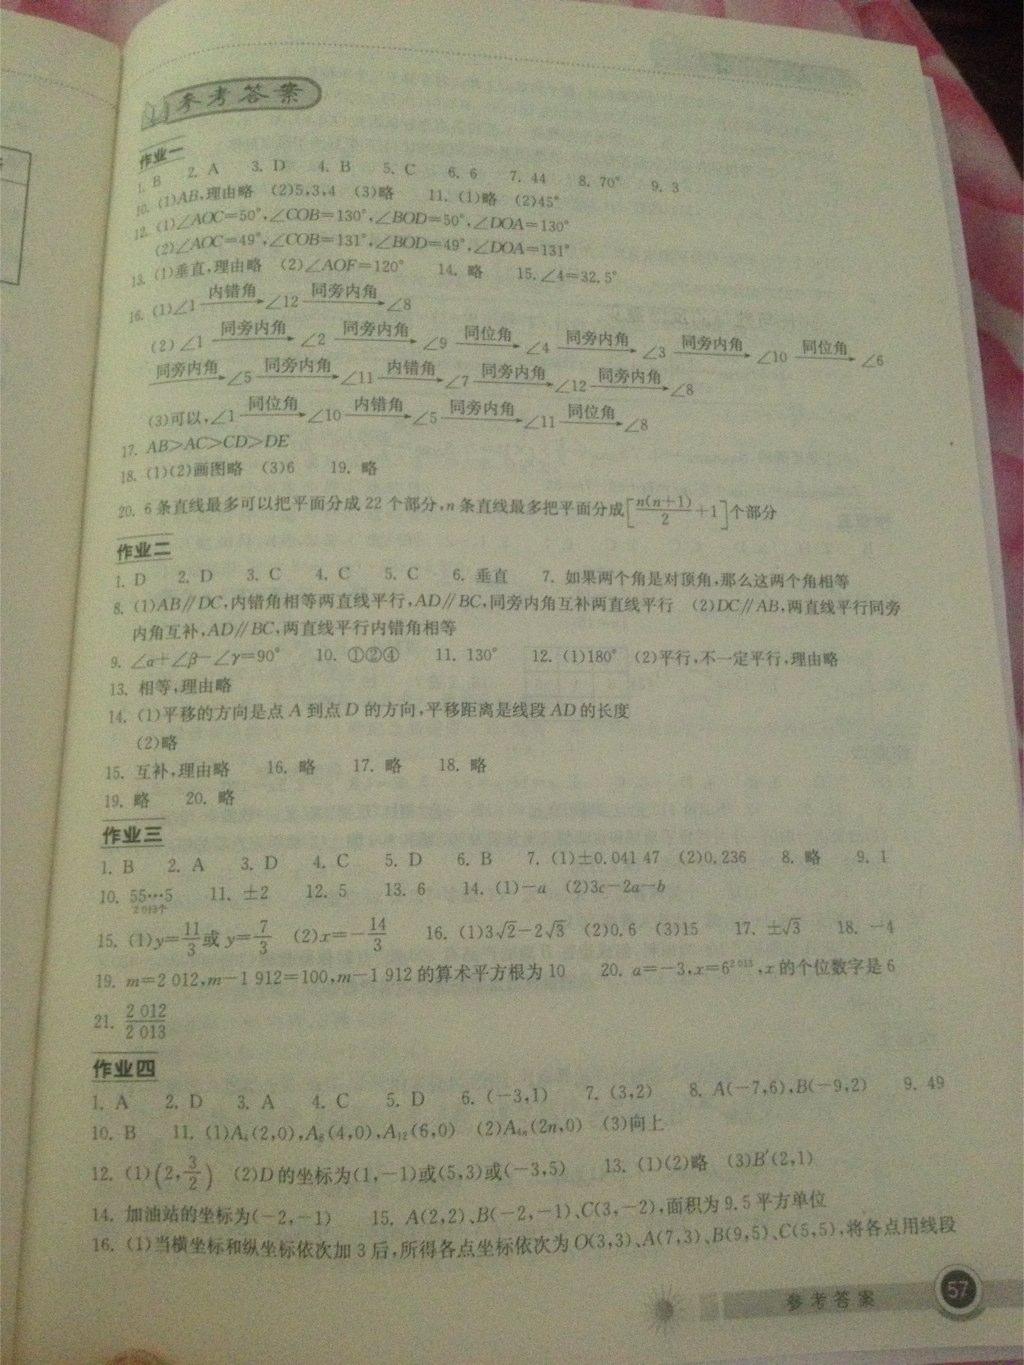 参考答案
作业一
1. B 2. A 3. D 4. B 5. C 6. 6 7. 44 8. 70° 9. 3
10. (1)AB,理由略 (2)5,3,4 (3)略 11. (1)略 (2)45°
12. (1)∠AOC=50°,∠COB=130°,∠BOD=50°,∠DOA=130°
(2)∠AOC=49°,∠COB=131°,∠BOD=49°,∠DOA=131°
13. (1)垂直,理由略 (2)∠AOF=120° 14. 略 15. ∠4=32.5°
16. (1)∠1 内错角→ ∠12 同旁内角→ ∠8
(2)∠1 同旁内角→ ∠2 同旁内角→ ∠9 同位角→ ∠4 同旁内角→ ∠3 同旁内角→ ∠10 同位角→ ∠6
同旁内角→ ∠5 同旁内角→ ∠11 内错角→ ∠7 同旁内角→ ∠12 同旁内角→ ∠8
(3)可以,∠1 同位角→ ∠10 内错角→ ∠5 同旁内角→ ∠11 同位角→ ∠8
17. AB>AC>CD>DE
18. (1)(2)画图略 (3)6 19. 略
20. 6 条直线最多可以把平面分成 22 个部分,n 条直线最多把平面分成[n(n+1)/2+1]个部分
作业二
1. D 2. D 3. C 4. C 5. C 6. 垂直 7. 如果两个角是对顶角,那么这两个角相等
8. (1)AB∥DC,内错角相等两直线平行,AD∥BC,同旁内角互补两直线平行 (2)DC∥AB,两直线平行同旁
内角互补,AD∥BC,两直线平行内错角相等
9. ∠α+∠β-∠γ=90° 10. ①②④ 11. 130° 12. (1)180° (2)平行,不一定平行,理由略
13. 相等,理由略
14. (1)平移的方向是点 A 到点 D 的方向,平移距离是线段 AD 的长度
(2)略
15. 互补,理由略 16. 略 17. 略 18. 略
19. 略 20. 略
作业三
1. B 2. A 3. D 4. C 5. D 6. B 7. (1)±0.041 47 (2)0.236 8. 略 9. 1
10. 55…5 2 013个 11. ±2 12. 5 13. 6 14. (1)-a (2)3c-2a-b
15. (1)y=11/3或 y=7/3 (2)x=-14/3 16. (1)3√2-2√3 (2)0.6 (3)15 17. ±√3 18. -4
19. m=2 012,m-1 912=100,m-1 912 的算术平方根为 10 20. a=-3,x=6²⁰¹³,x 的个位数字是 6
21. 2 012/2 013
作业四
1. A 2. D 3. A 4. C 5. D 6. (-3,1) 7. (3,2) 8. A(-7,6),B(-9,2) 9. 49
10. B 11. (1)A₄(2,0),A₈(4,0),A₁₂(6,0) (2)A₄ₙ(2n,0) (3)向上
12. (1)(2,3/2) (2)D 的坐标为(1,-1)或(5,3)或(-3,5) 13. (1)(2)略 (3)B′(2,1)
14. 加油站的坐标为(-2,-1) 15. A(2,2)、B(-2,-1)、C(3,-2),面积为 9.5 平方单位
16. (1)当横坐标和纵坐标依次加 3 后,所得各点坐标依次为 O(3,3)、A(7,3)、B(9,5)、C(5,5),将各点用线段
参考答案 57